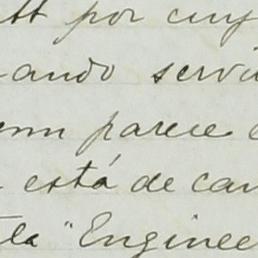 tt por cuy
ando servi
enn parece
está de car
tla "Enginee